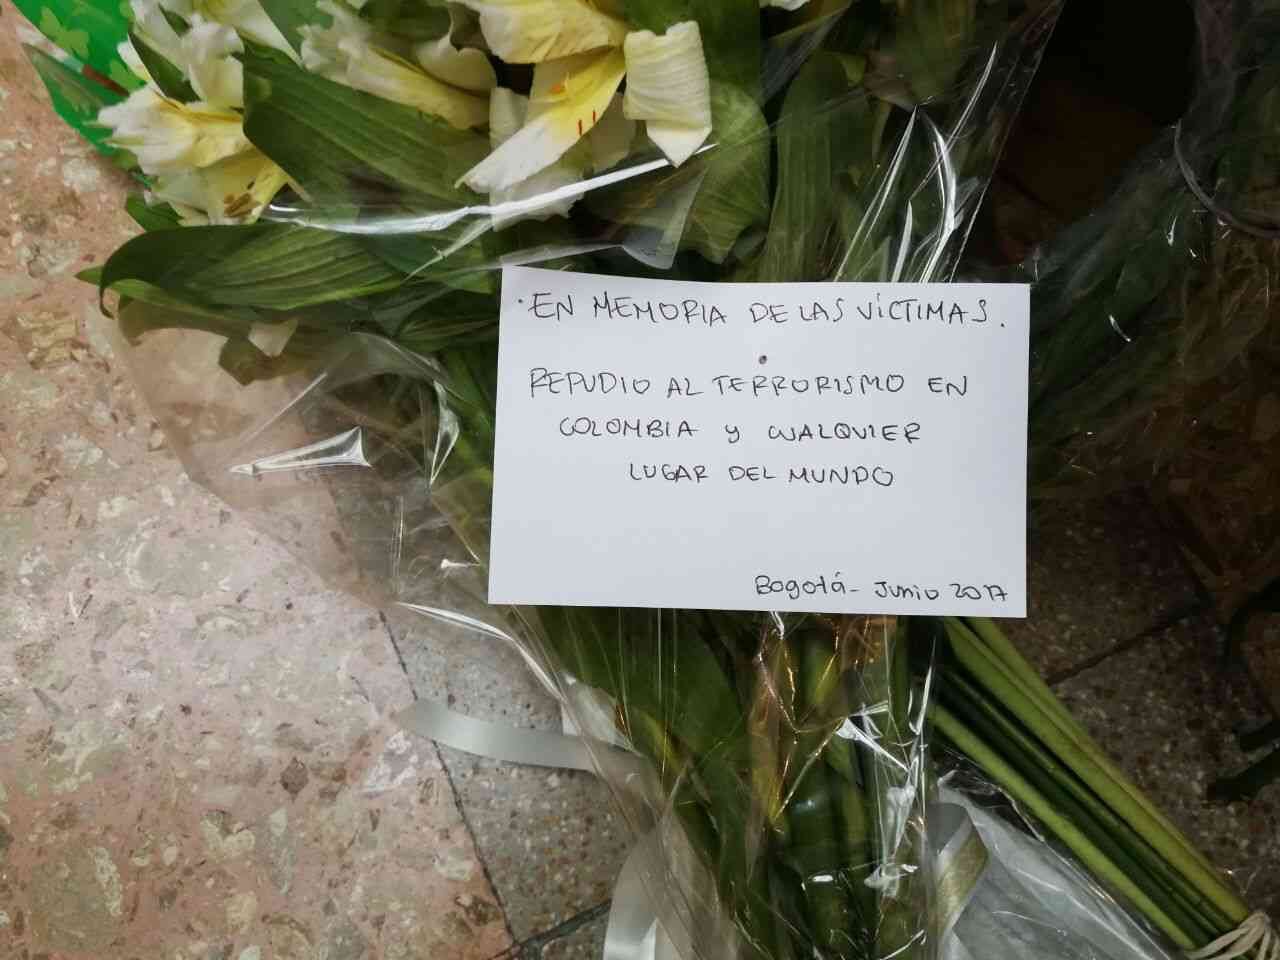 ·EN MEMORIA DE LAS VÍCTIMAS.
REPUDIO AL TERRORISMO EN
COLOMBIA y CUALQUIER
LUGAR DEL MUNDO
Bogotá - Junio 2017